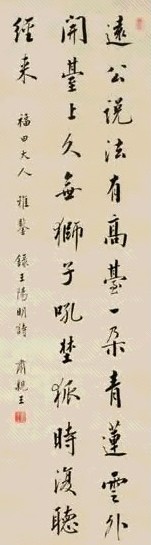 遠公説法有高臺一朵青蓮雲外
開臺上久無獅子吼埜狐時復聽
經来
福田大人 雅鑒 錄王陽明詩 肅親王